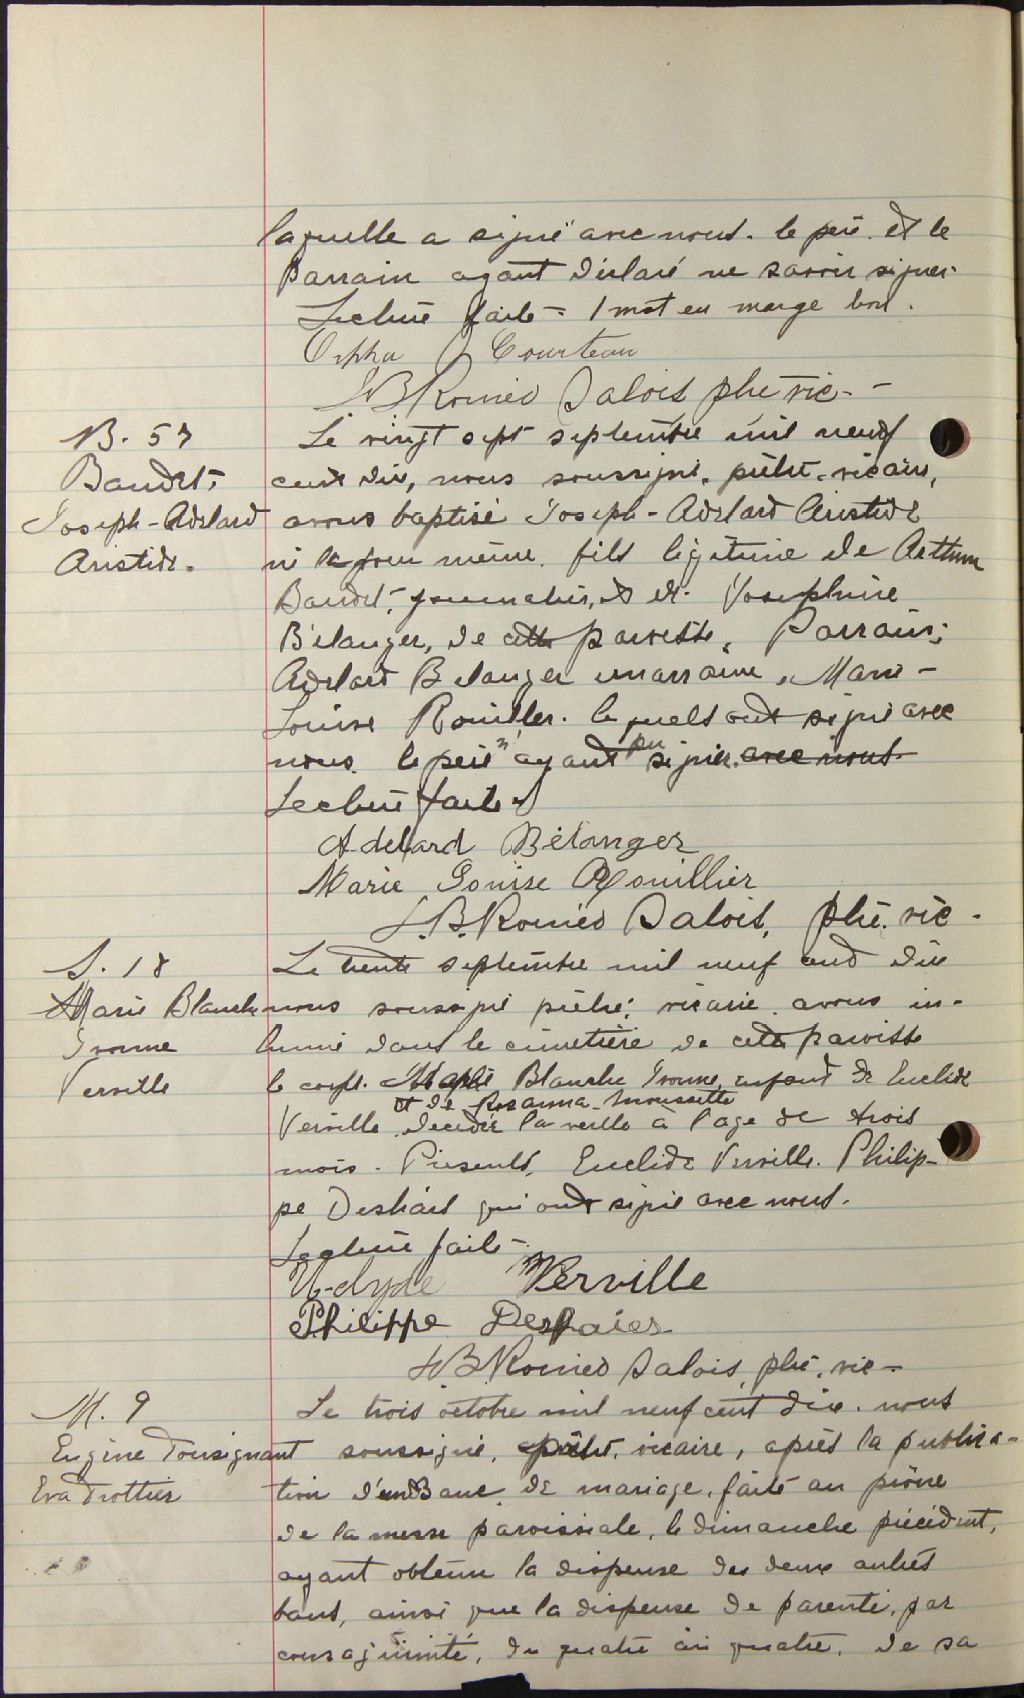 laquelle a signé avec nous. le père et le
Parrain ayant déclaré ne savoir signer.
Lecture faite = 1 mot en marge bon.
Orpha Courteau
J.B. Roméo Salois ptre vic-
B. 57
Baudet,
Joseph-Adélard
Aristide.
Le vingt sept septembre mil neuf
cent dix, nous soussigné, prêtre-vicaire,
avons baptisé Joseph-Adélard Aristide
né le jour même, fils légitime de Arthur
Baudet, journalier, et de Joséphine
Bélanger, de cette paroisse. Parrain;
Adélard Bélanger marraine, Marie-
Louise Rouiller. lequels ont signé avec
nous. le père n'ayant pu signer. avec nous.
Lecture faite.
Adélard Bélanger
Marie Louise Rouillier
J.B. Roméo Salois, ptre. vic-
S. 18
Marie Blanche
Yvonne
Verville
Le trente septembre mil neuf cent dix
nous soussigné prêtre, vicaire avons in-
humé dans le cimetière de cette paroisse
le corps. Marie Blanche Yvonne, enfant de Euclide
et de Rosanna Moussette
Verville décédée la veille à l'age de trois
mois. Présents, Euclide Verville. Philip-
pe Deshaies qui ont signé avec nous.
Lecture faite-
U-clyde Verville
Philippe Deshaies
J.B. Roméo Salois, ptre, vic-
M. 9
Eugène Tousignant
Eva Trottier
Le trois octobre mil neuf cent dix. nous
soussigné, prêtre, vicaire, après la publica-
tion d'un Banc de mariage, faite au prône
de la messe paroissiale, le dimanche précédent,
ayant obtenu la dispense des deux autres
bans, ainsi que la dispense de parenté, par
consaguinité, du quatre au quatre, de sa